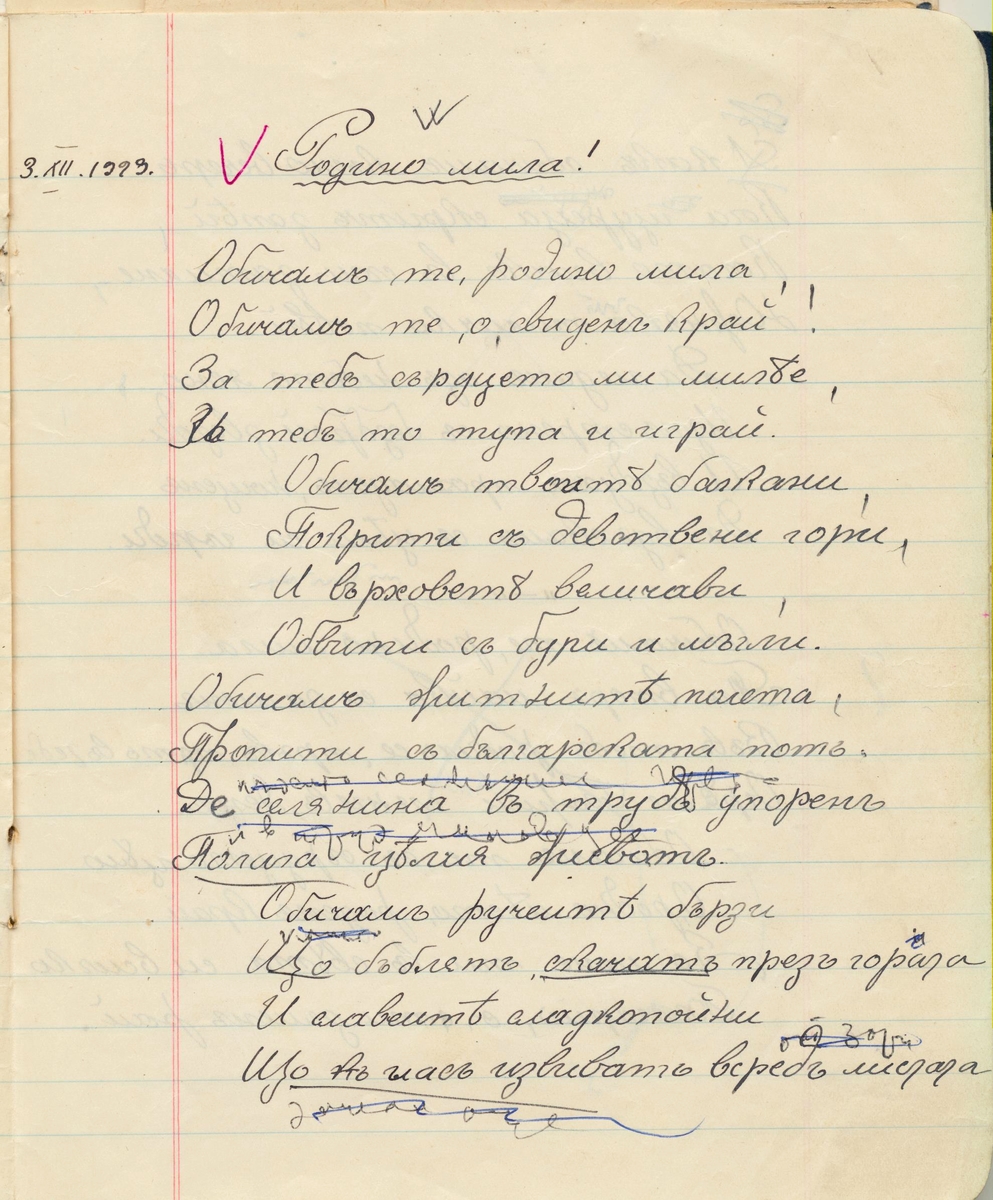 3.XII.1923.
Родино мила!
Обичамъ те, родино мила,
Обичамъ те, о, свиденъ край!
За тебъ сърдцето ми милѣе,
За тебъ то тупа и играй.
Обичамъ твоитѣ балкани,
Покрити съ девствени гори,
И върховетѣ величави,
Обвити съ бури и мъгли.
Обичамъ житнитѣ полета,
Пропити съ българската потъ.
Де селянина въ трудъ упоренъ
Полага цѣлия животъ.
Обичамъ ручеитѣ бързи
Що бъблятъ, скачатъ презъ гората
И славеитѣ сладкопойни
Що гласъ извиватъ всредъ листата